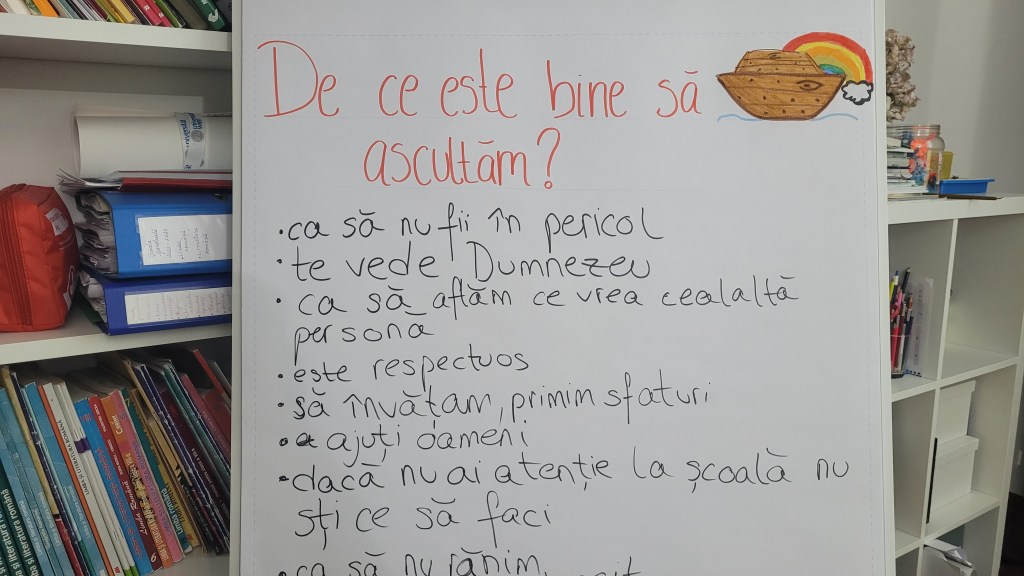 De ce este bine să
ascultăm?
• ca să nu fii în pericol
• te vede Dumnezeu
• ca să aflăm ce vrea cealaltă
personă
• este respectuos
• să învățam, primim sfaturi
• ajuți oameni
• dacă nu ai atenție la școală nu
ști ce să faci
• ca să nu rănim,